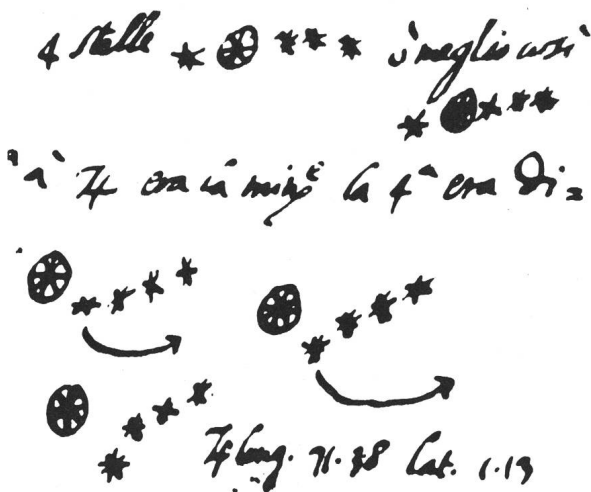 4 stelle ò meglio così
à ♃ era la minᵉ la 4ᵃ era di=
♃ long. 71.38 lat. 1.13